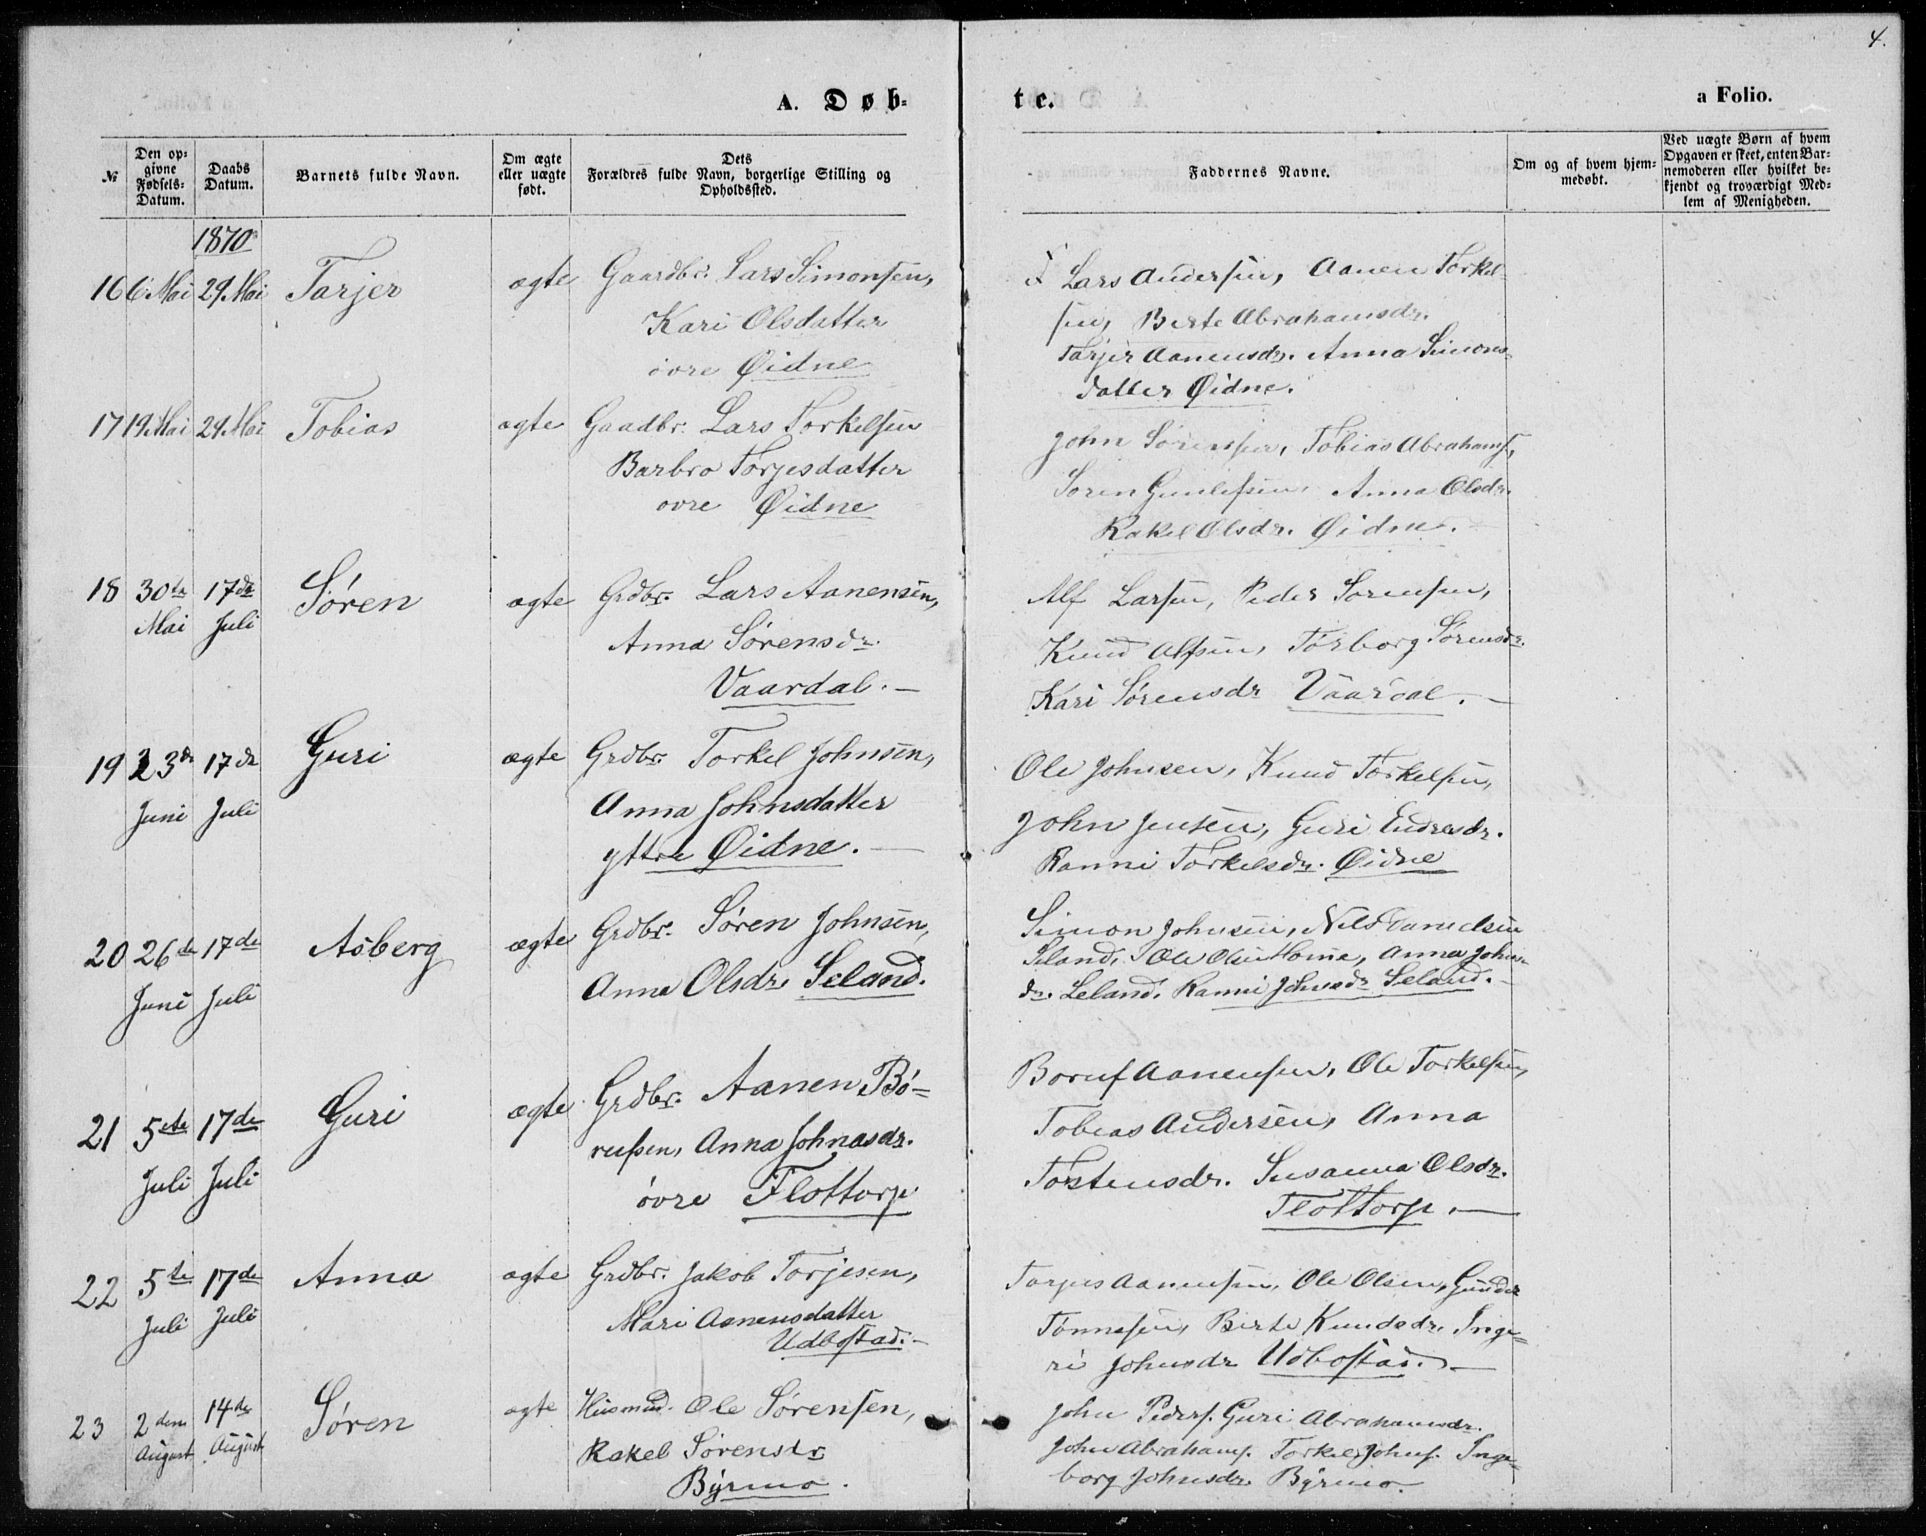 4.
A. Døb-
te.
a Folio.
№
Den op-
givne
Fødsels-
Datum.
Daabs
Datum.
Barnets fulde Navn.
Om ægte
eller uægte
født.
Dets
Forældres fulde Navn, borgerlige Stilling og
Opholdssted.
Faddernes Navne.
Om og af hvem hjem-
medøbt.
Ved uægte Børn af hvem
Opgaven er skeet, enten Bar-
nemoderen eller hvilket be-
kjendt og troværdigt Med-
lem af Menigheden.
1870
16 6 Mai 29 Mai Tarjer ægte Gaardbr. Lars Simonsen,
Kari Olsdatter
øvre Øidne
Lars Andersen, Aanen Torkel-
sen, Berte Abrahamsdr.
Tarjer Aanensdr. Anna Simons-
datter Øidne.
17 19 Mai 29 Mai Tobias ægte Gaadbr. Lars Torkelsen
Barbro Torjesdatter
øvre Øidne
John Sørensen, Tobias Abrahams.,
Søren Gunlefsen, Anna Olsdr.
Rakel Olsdr. Øidne.
18 30te 17de Søren ægte Grdbr. Lars Aanensen,
Mai Juli
Anna Sørensdr.
Vaardal. —
Alf Larsen, Peder Sørensen,
Knud Alfsen, Torborg Sørensdr.
Kari Sørensdr Vaardal. —
19 23de 17de Guri ægte Grdbr. Torkel Johnsen,
Juni Juli
Anna Johnsdatter
yttre Øidne. —
Ole Johnsen, Knud Torkelsen,
John Jensen, Guri Endresdr.
Ranni Torkelsdr. Øidne
20 26de 17de Asberg ægte Grdbr. Søren Johnsen,
Juni Juli
Anna Olsdr. Seland.
Simon Johnsen, Nils Danielsen
Seland, Ole Olsen Home, Anna Johns-
dr. Seland. Ranni Johnsdr Seland. -
21 5te 17de Guri ægte Grdbr. Aanen Bø-
Juli Juli
rufsen, Anna Johnasdr.
øvre Flottorp
Boruf Aanensen, Ole Torkelsen,
Tobias Andersen, Anna
Tostensdr. Susanna Olsdr.
Flottorp. —
22 5te 17de Anna ægte Grdbr. Jakob Torjesen,
Juli Juli
Mari Aanensdatter
Udbostad. —
Torjus Aanensen, Ole Olsen, Gunder
Tønnesen, Berte Knudsdr. Inge-
ri Johnsdr Udbostad. —
23 2den 14de Søren ægte Husmnd. Ole Sørensen,
August August
Rakel Sørensdr
Byrmo.
John Peders. Guri Abrahamsdr.
John Abrahams. Torkel Johns. Inge-
borg Johnsdr. Byrmo.